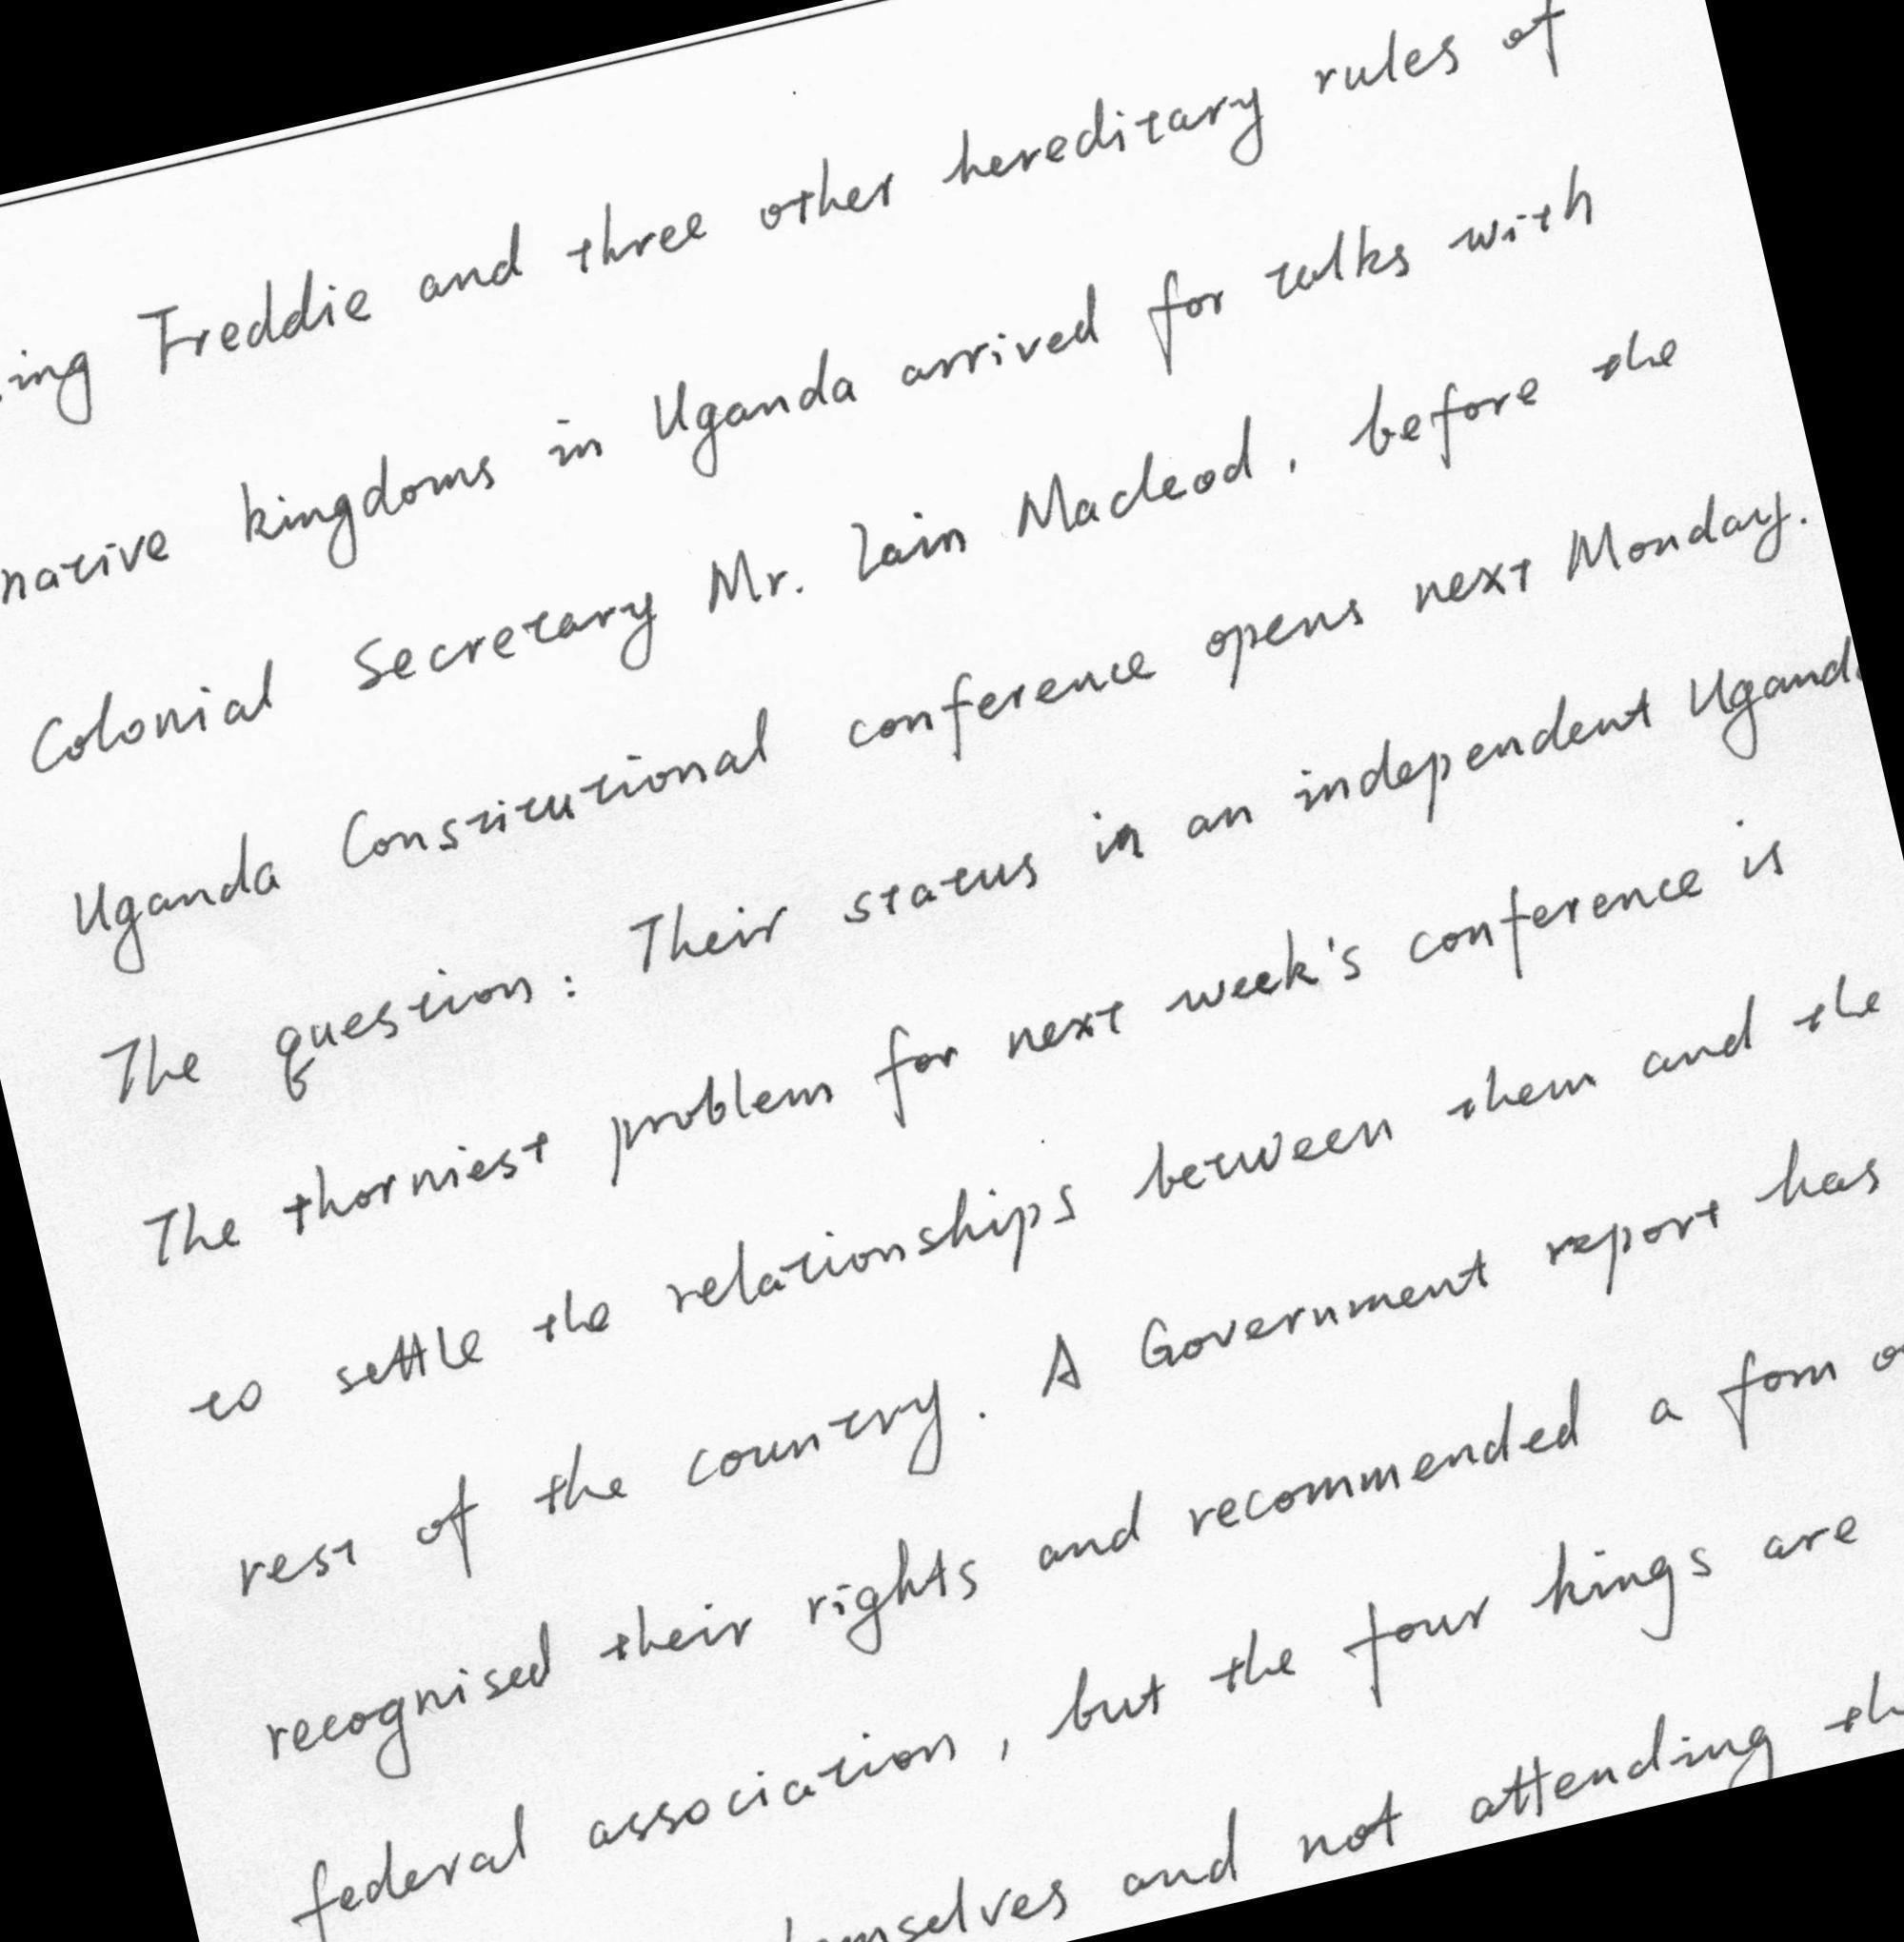 Freddie and three other hereditary rules of
native kingdoms in Uganda arrived for talks with
Colonial Secretary Mr. Iain Macleod, before the
Uganda Constitutional conference opens next Monday.
The question: Their status in an independent
The thorniest problem for next week's conference is
to settle the relationships between them and the
rest of the country. A Government report has
recognised their rights and recommended a form
federal association, but the four kings are
and not attending